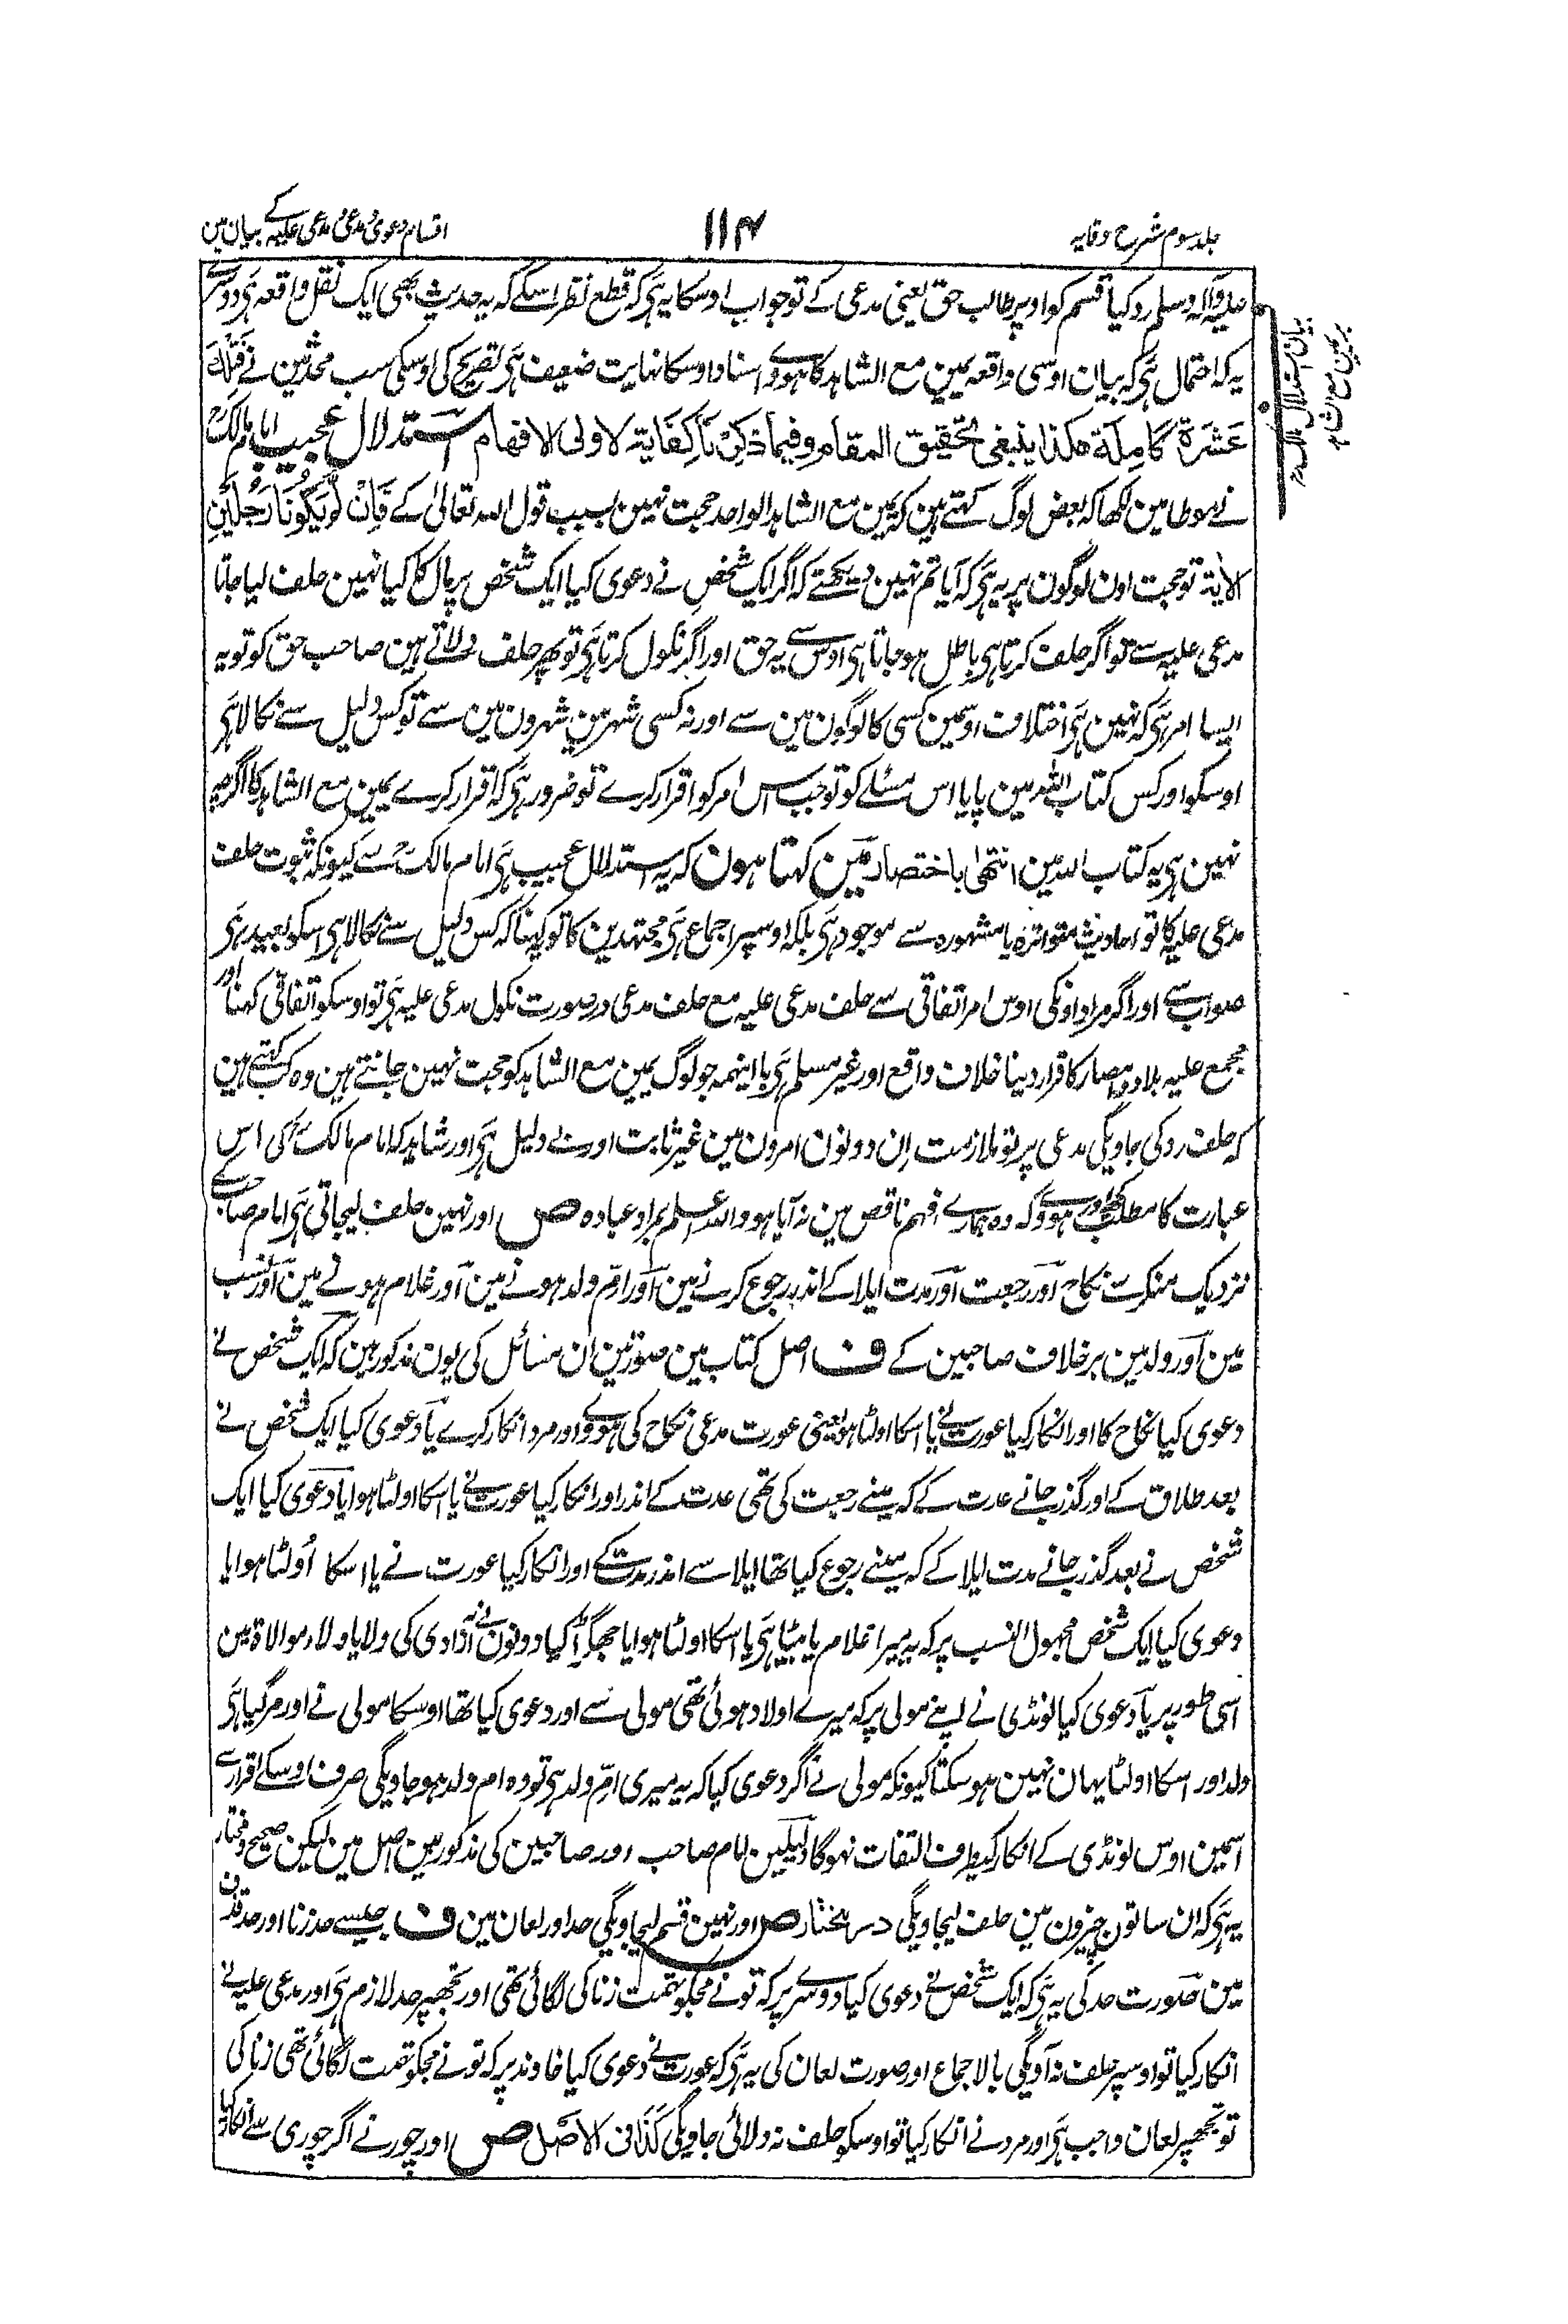 جلد سوم شرح وقایہ
۱۱۴
اقسام دعوی و مدعی و مدعی علیہ کے بیان مین
علیہ وآلہ وسلم رد کیا قسم کو اوپر طالب حق یعنی مدعی کے توجواب اوسکا یہ ہی کہ قطع نظر اسکے کہ یہ حدیث بھی ایک نقل واقعہ ہی دوسرے
یہ کہ احتمال ہی کہ بیان اوسی واقعہ یمین مع الشاہد کا ہووے اسناد اوسکا نہایت ضعیف ہی تصریح کی اوسکی سب محدثین نے فَتِلْكَ
عَشَرَةٌ كَامِلَةٌ هكذا ینبغی تحقیق المقام وفیما ذکرنا کفایة لاولی الافهام استدلال عجیب امام مالکؒ
نے موطا مین لکھا کہ بعض لوگ کہتے ہین کہ یمین مع الشاہد الواحد حجت نہین بسبب قول اللہ تعالیٰ کے فَاِنْ لَّمْ يَكُوْنَا رَجُلَيْنِ
الایۃ توحجت اون لوگون پر یہ ہی کہ آیا تم نہین دیکھتے کہ اگر ایک شخص نے دعوی کیا ایک شخص پر مال کا کیا نہین حلف لیا جاتا
مدعی علیہ سے تو اگر حلف کرتا ہی باطل ہوجاتا ہی اوس سے یہ حق اور اگر نکول کرتا ہی تو پھر حلف دلاتے ہین صاحب حق کو تو یہ
ایسا امر ہی کہ نہین ہی اختلاف اوسمین کسی کا لوگون مین سے اور نہ کسی شہر مین شہرون مین سے تو کس دلیل سے نکالا ہی
اوسکو اور کس کتاب اللہ مین پایا اس مسئلے کو توجب اس امر کو اقرار کرے تو ضرور ہی کہ اقرار کرے یمین مع الشاہد کا اگرچہ
نہین ہی یہ کتاب اللہ مین انتھیٰ باختصار مین کہتا ہون کہ یہ استدلال عجیب ہی امام مالکؒ سے کیونکہ ثبوت حلف
مدعی علیہ کا تو احادیث متواترہ یا مشہورہ سے موجود ہی بلکہ اوسپر اجماع ہی مجتہدین کا تو کہنا کہ کس دلیل سے نکالا ہی اسکو بعید ہی
صواب سے اور اگر مراد اونکی اوس امر اتفاقی سے حلف مدعی علیہ مع حلف مدعی درصورت نکول مدعی علیہ ہی تو اوسکو اتفاقی کہنا اور
مجمع علیہ بلاد و امصار کا قرار دینا خلاف واقع اور غیر مسلم ہی با اینہمہ جو لوگ یمین مع الشاہد کو حجت نہین جانتے ہین وہ کب کہتے ہین
کہ حلف رد کی جاویگی مدعی پر تو ملازمت اِن دونون امرون مین غیر ثابت اور بے دلیل ہی اور شاید کہ امام مالکؒ کی اس
عبارت کا مطلب کچھ اور ہووے کہ وہ ہمارے افہم ناقص مین نہ آیا ہو واللہ اعلم بمراد عبادہ ص اور نہین حلف لیجاتی ہی امام صاحب کے
نزدیک منکر سے نکاح اور رجعت اور مدت ایلا کے اندر رجوع کرنے مین اور امّ ولد ہونے مین اور غلام ہونے مین اور نسب
مین اور ولا مین برخلاف صاحبین کے ف اصل کتاب مین صورتین ان مسائل کی یون مذکور ہین کہ ایک شخص نے
دعوی کیا نکاح کا اور انکار کیا عورت نے یا اسکا اولٹا ہو یعنی عورت مدعی نکاح کی ہووے اور مرد انکار کرے یا دعوی کیا ایک شخص نے
بعد طلاق کے اور گذر جانے عدت کے کہ مینے رجعت کی تھی عدت کے اندر اور انکار کیا عورت نے یا اسکا اولٹا ہوا یا دعوی کیا ایک
شخص نے بعد گذر جانے مدت ایلا کے کہ مینے رجوع کیا تھا ایلا سے اندر مدت کے اور انکار کیا عورت نے یا اسکا اُولٹا ہوا یا
دعوی کیا ایک شخص مجہول النسب پر کہ یہ میرا غلام یا بیٹا ہی یا اسکا اولٹا ہوا یا جھگڑا کیا دونون نے آزادی کی ولا یا ولاء موالاۃ مین
اسی طور پر یا دعوی کیا لونڈی نے اپنے مولی پر کہ میرے اولاد ہوئی تھی مولی سے اور دعوی کیا تھا اوسکا مولی نے اور مرگیا ہی
ولد اور اسکا اولٹا یہان نہین ہوسکتا کیونکہ مولی نے اگر دعوی کیا کہ یہ میری امّ ولد ہی تو وہ ام ولد ہوجاویگی صرف اوسکے اقرار سے
اسمین اوس لونڈی کے انکار کیطرف التفات نہوگا دلیلین امام صاحب اور صاحبین کی مذکور ہین اصل مین لیکن صحیح و مختار
یہ ہی کہ ان ساتون چیزون مین حلف لیجاویگی درمختار ص اور نہین قسم لیجاویگی حد اور لعان مین ف جیسے حد زنا اور حد قذف
مین صورت حد کی یہ ہی کہ ایک شخص نے دعوی کیا دوسرے پر کہ تونے مجکو تہمت زنا کی لگائی تھی اور تجھپر حد لازم ہی اور مدعی علیہ نے
انکار کیا تو اوسپر حلف نہ آویگی بالاجماع اور صورت لعان کی یہ ہی کہ عورت نے دعوی کیا خاوند پر کہ تونے مجکو تہمت لگائی تھی زنا کی
تو تجھپر لعان واجب ہی اور مرد نے انکار کیا تو اوسکو حلف نہ دلائی جاویگی کَذَا فی الاصل ص اور چور نے اگر چوری سے انکار کیا
بیان استدلال مالک رح
بر یمین مع الشاہد